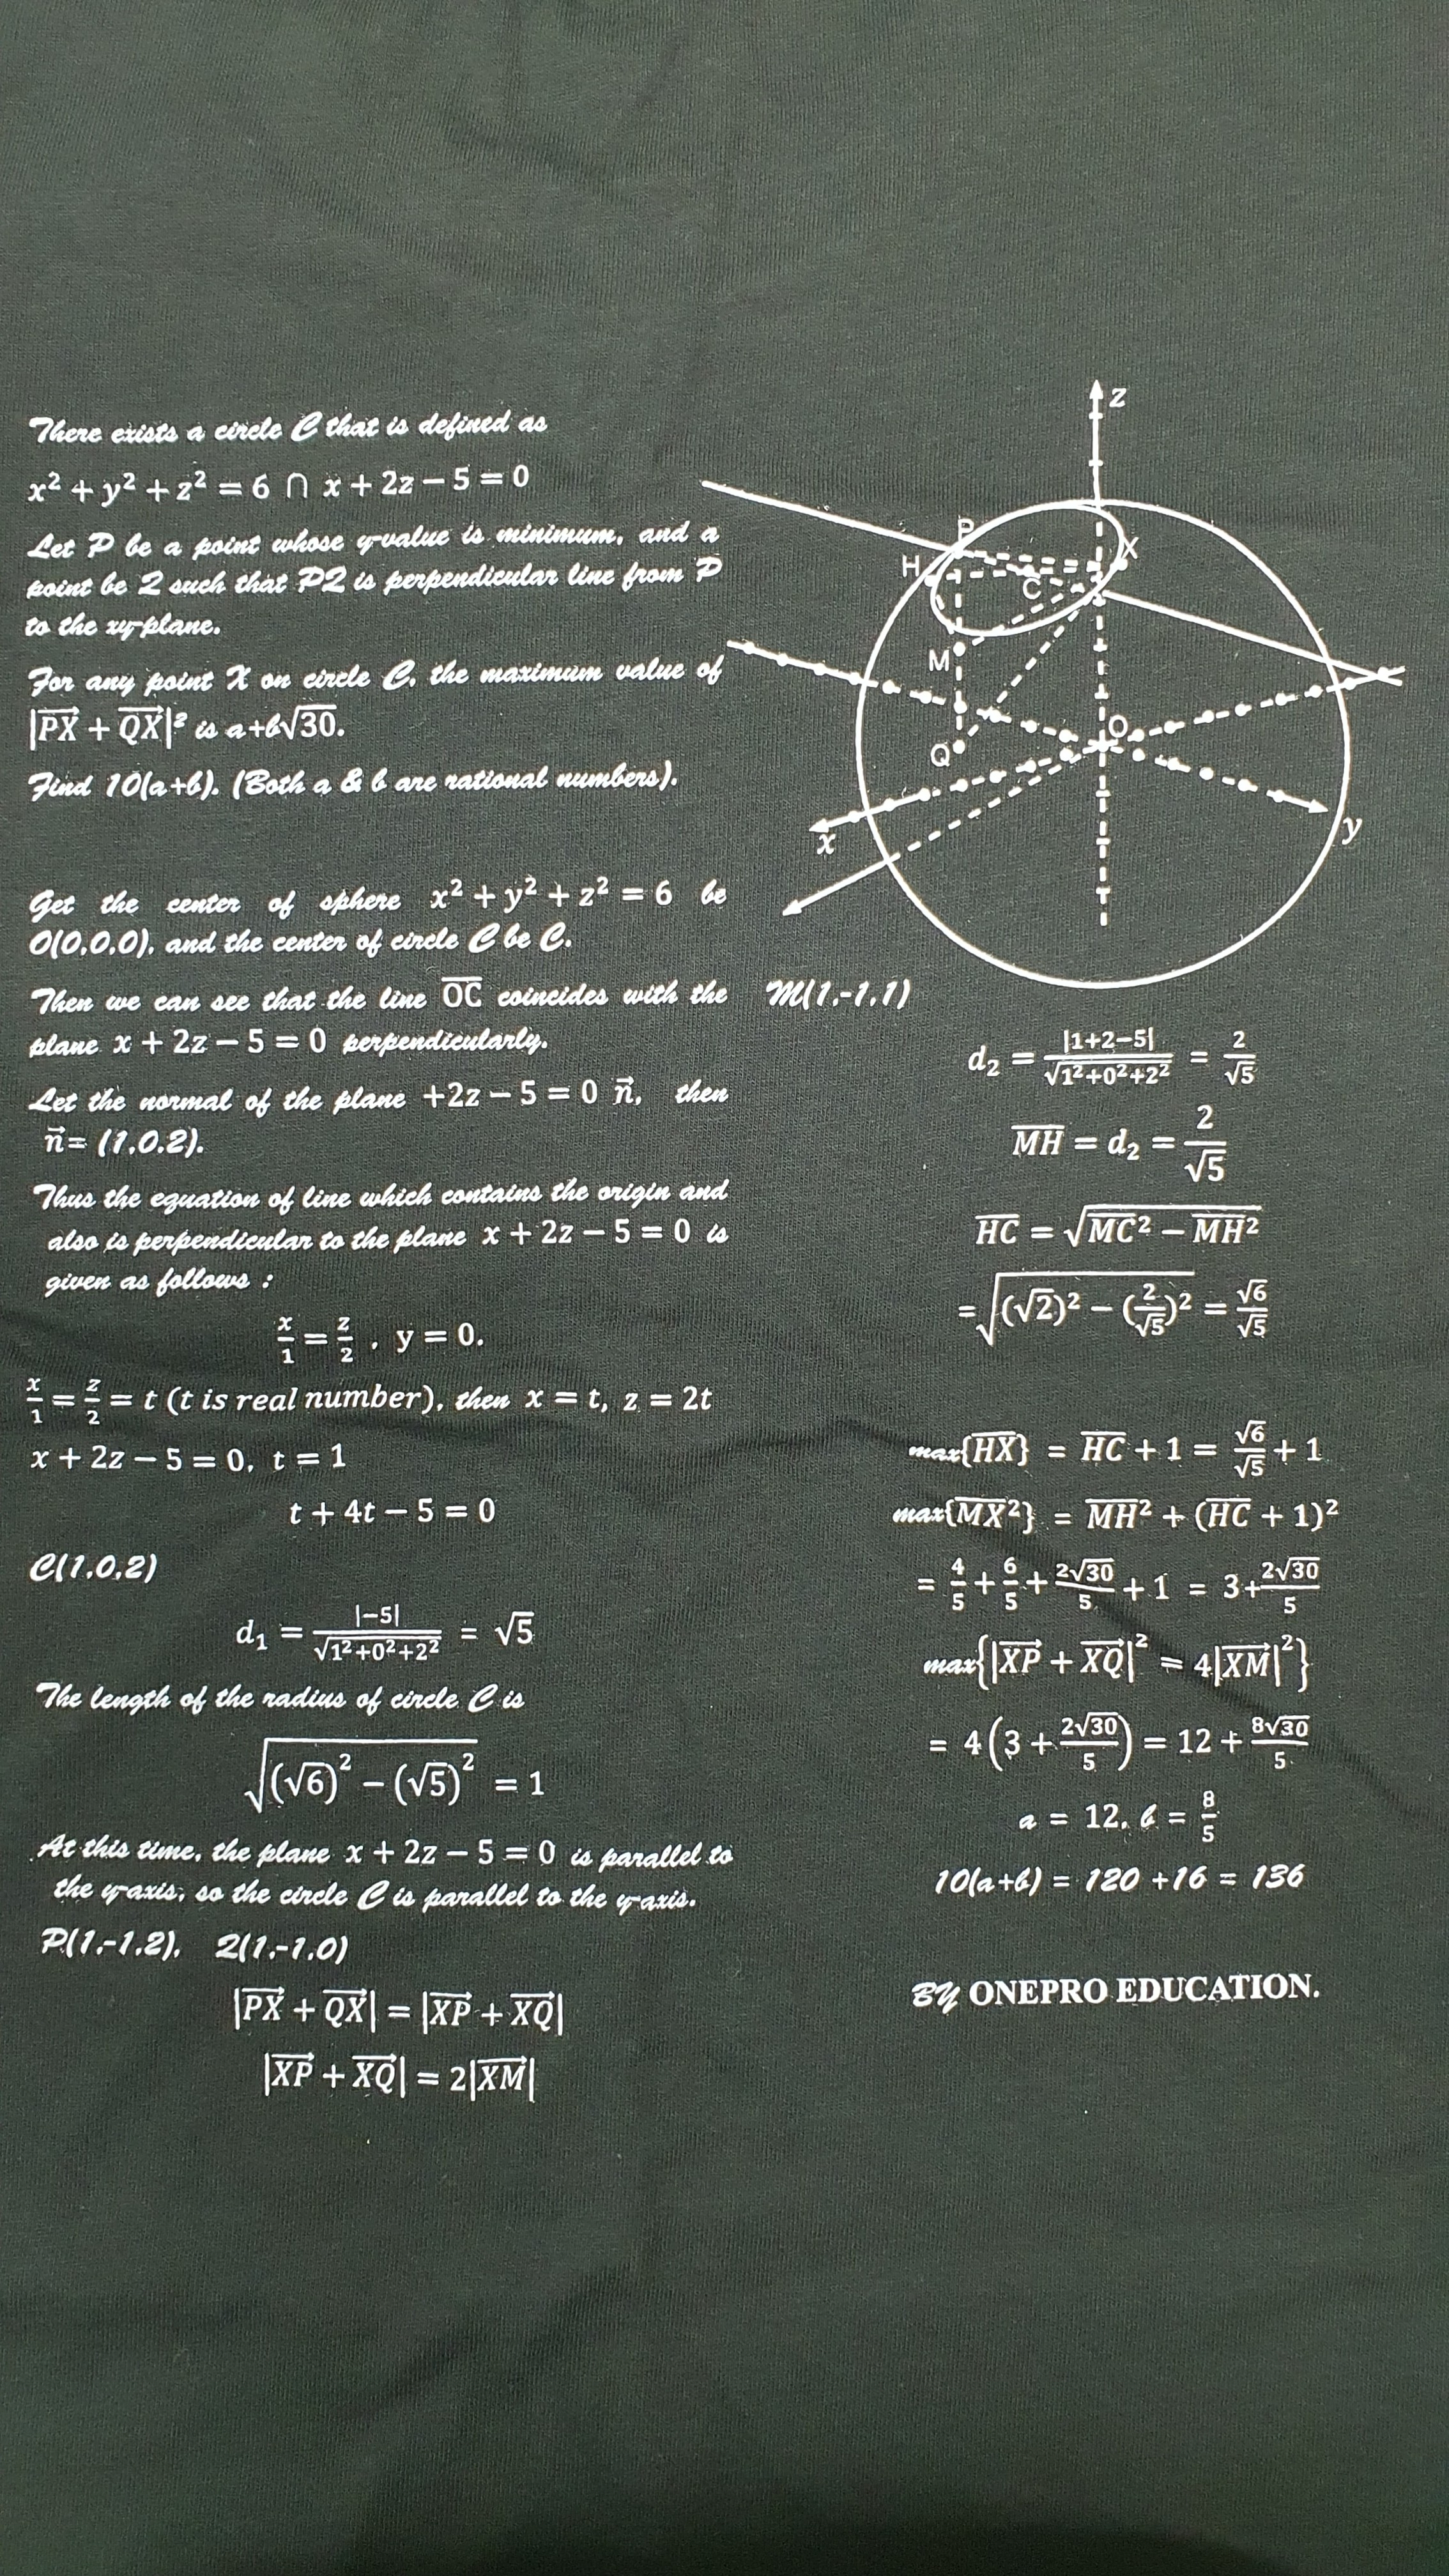 There exists a circle C that is defined as
x² + y² + z² = 6 ∩ x + 2z − 5 = 0
Let P be a point whose y-value is minimum, and a
point be Q such that PQ is perpendicular line from P
to the xy-plane.
For any point X on circle C, the maximum value of
|PX + QX|² is a+b√30.
Find 10(a+b). (Both a & b are rational numbers).
Get the center of sphere x² + y² + z² = 6 be
O(0,0,0), and the center of circle C be C.
Then we can see that the line OC coincides with the
plane x + 2z − 5 = 0 perpendicularly.
Let the normal of the plane +2z − 5 = 0 n⃗, then
n⃗= (1,0,2).
Thus the equation of line which contains the origin and
also is perpendicular to the plane x + 2z − 5 = 0 is
given as follows :
x/1 = z/2 , y = 0.
x/1 = z/2 = t (t is real number), then x = t, z = 2t
x + 2z − 5 = 0, t = 1
t + 4t − 5 = 0
C(1,0,2)
d₁ = |−5|/√1²+0²+2² = √5
The length of the radius of circle C is
√(√6)² − (√5)² = 1
At this time, the plane x + 2z − 5 = 0 is parallel to
the y-axis, so the circle C is parallel to the y-axis.
P(1,-1,2), Q(1,-1,0)
|PX + QX| = |XP + XQ|
|XP + XQ| = 2|XM|
z
P
X
H
C
M
O
Q
x
y
M(1,-1,1)
d₂ = |1+2−5|/√1²+0²+2² = 2/√5
MH = d₂ = 2/√5
HC = √MC² − MH²
= √(√2)² − (2/√5)² = √6/√5
max{HX} = HC + 1 = √6/√5 + 1
max{MX²} = MH² + (HC + 1)²
= 4/5 + 6/5 + 2√30/5 + 1 = 3+ 2√30/5
max{|XP + XQ|² = 4|XM|²}
= 4(3 + 2√30/5) = 12 + 8√30/5
a = 12, b = 8/5
10(a+b) = 120 +16 = 136
BY ONEPRO EDUCATION.